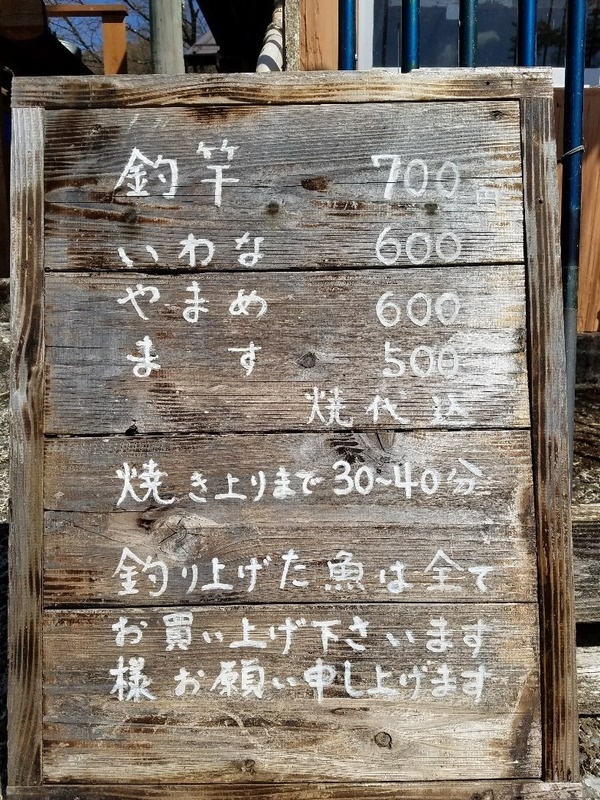 釣竿 700円
いわな 600
やまめ 600
ます 500
焼代込
焼き上りまで30~40分
釣り上げた魚は全て
お買い上げ下さいます
様お願い申し上げます